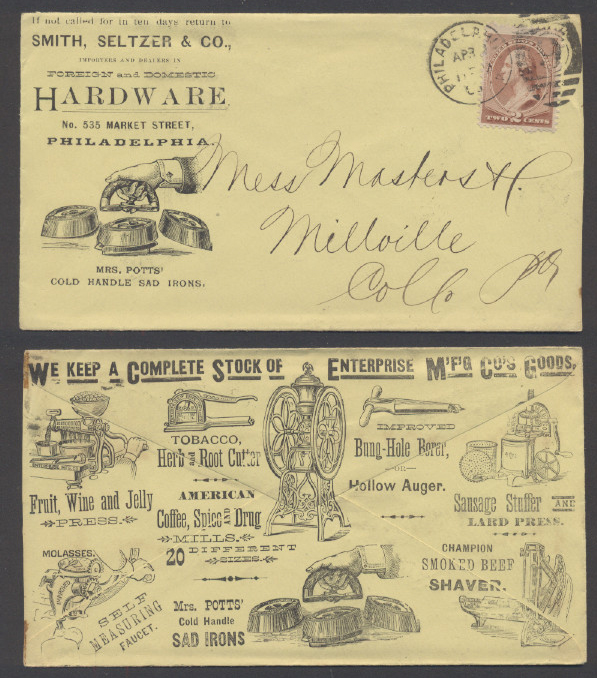 If not called for in ten days return to
SMITH, SELTZER & CO.,
IMPORTERS AND DEALERS IN
FOREIGN and DOMESTIC
HARDWARE
No. 535 MARKET STREET,
PHILADELPHIA.
MRS. POTTS'
COLD HANDLE SAD IRONS.
PHILADELPHIA
APR
TWO 2 CENTS
Mess Masters & Co.
Millville
Col Co Pa
WE KEEP A COMPLETE STOCK OF ENTERPRISE M'F'G CO'S GOODS,
Fruit, Wine and Jelly
PRESS.
TOBACCO,
Herb and Root Cutter
AMERICAN
Coffee, Spice AND Drug
MILLS.
20 DIFFERENT
SIZES.
IMPROVED
Bung-Hole Borer,
—or—
Hollow Auger.
Sausage Stuffer AND
LARD PRESS.
MOLASSES.
SELF
MEASURING
FAUCET.
Mrs. POTTS'
Cold Handle
SAD IRONS
CHAMPION
SMOKED BEEF
SHAVER.